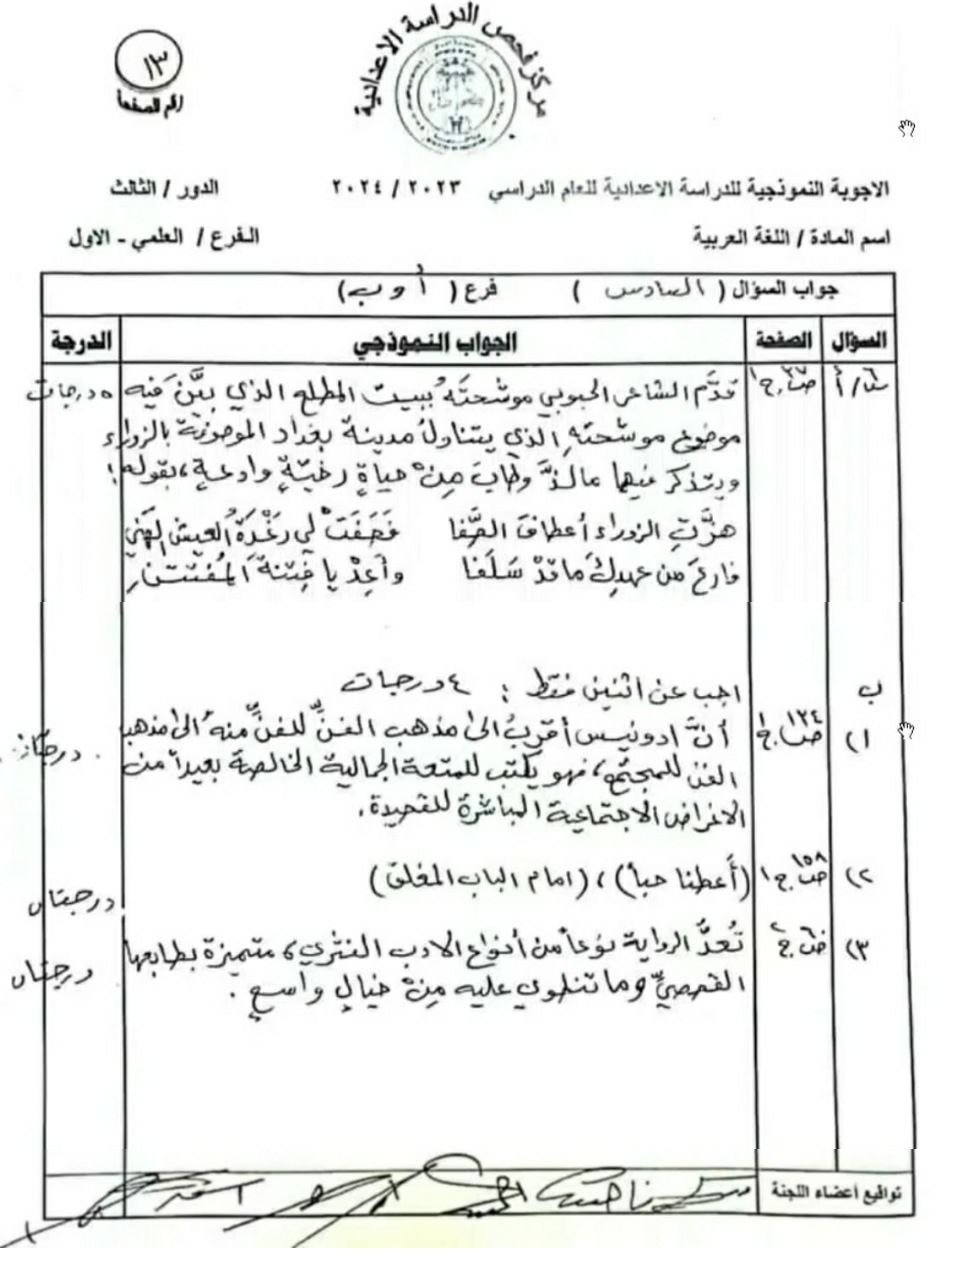 مركز فحص الدراسة الاعدادية
١٣
رقم الصفحة
الاجوبة النموذجية للدراسة الاعدادية للعام الدراسي ٢٠٢٣ / ٢٠٢٤ الدور / الثالث
اسم المادة / اللغة العربية الفرع / العلمي - الاول
جواب السؤال ( السادس ) فرع ( أ وب )
السؤال الصفحة الجواب النموذجي الدرجة
س٦/أ ص٣٦ ج١ قدَّم الشاعر الحبوبي موشحتَهُ ببيت المطلع الذي بيَّن فيه ٥ درجات
موضوع موشحتهِ الذي يتناولُ مدينة بغداد الموصوفة بالزوراء
ويتذكر فيها ما لذَّ وطابَ مِنْ حياةٍ رخيّةٍ وادعةٍ، بقوله:
هزَّتِ الزوراء أعطافَ الصَّفا فَصَفَتْ لي رَغْدَةُ العيش الهَني
فارعَ من عهدِكَ ما قدْ سَلَفا وأعِدْ يا فِتنةَ المُفتتنِ
ب اجب عن اثنين فقط : ٤ درجات
١) ص١٣٤ ج١ أنَّ ادونيس أقربُ الى مذهب الفنِّ للفنِّ منه الى مذهب درجتان
الفن للمجتمع، فهو يكتب للمتعة الجمالية الخالصة بعيداً من
الاغراض الاجتماعية المباشرة للقصيدة.
٢) ص١٥٨ ج١ (أَعطنا حباً)، (امام الباب المغلق) درجتان
٣) ص٦ ج٢ تُعدُّ الرواية نوعاً من أنواع الادب النثري، متميزة بطابعها درجتان
القصصيِّ وما تنطوي عليه مِنْ خيالٍ واسعٍ.
تواقيع أعضاء اللجنة